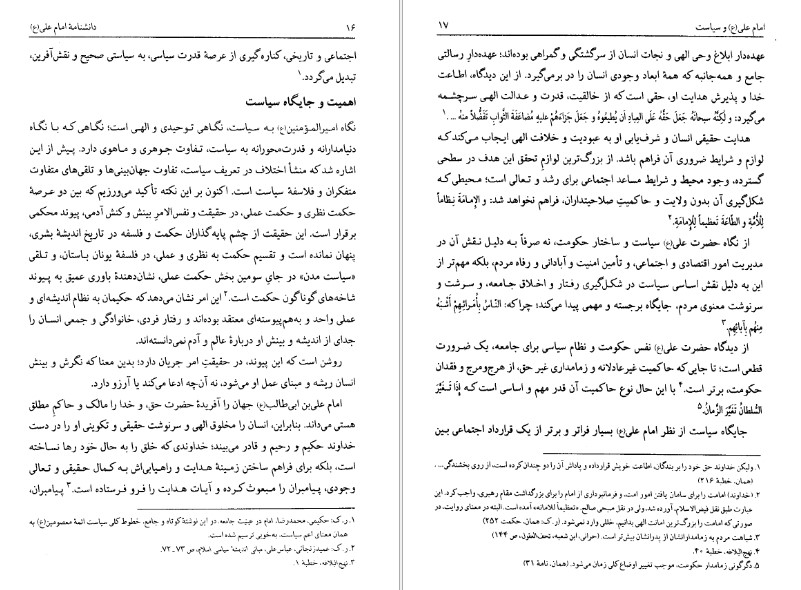 ۱۶
دانشنامهٔ امام علی(ع)
اجتماعی و تاریخی، کناره‌گیری از عرصهٔ قدرت سیاسی، به سیاستی صحیح و نقش‌آفرین،
تبدیل می‌گردد.۱
اهمیت و جایگاه سیاست
نگاه امیرالمؤمنین(ع) به سیاست، نگاهی توحیدی و الهی است؛ نگاهی که با نگاه
دنیامدارانه و قدرت‌محورانه به سیاست، تفاوت جوهری و ماهوی دارد. پیش از این
اشاره شد که منشأ اختلاف در تعریف سیاست، تفاوت جهان‌بینی‌ها و تلقی‌های متفاوت
متفکران و فلاسفهٔ سیاست است. اکنون بر این نکته تأکید می‌ورزیم که بین دو عرصهٔ
حکمت نظری و حکمت عملی، در حقیقت و نفس‌الامرِ بینش و کنش آدمی، پیوند محکمی
برقرار است. این حقیقت از چشم پایه‌گذاران حکمت و فلسفه در تاریخ اندیشهٔ بشری،
پنهان نمانده است و تقسیم حکمت به نظری و عملی، در فلسفهٔ یونان باستان، و تلقی
«سیاست مدن» در جایِ سومین بخش حکمت عملی، نشان‌دهندهٔ باوری عمیق به پیوند
شاخه‌های گوناگون حکمت است.۲ این امر نشان می‌دهد که حکیمان به نظام اندیشه‌ای و
عملی واحد و به‌هم‌پیوسته‌ای معتقد بوده‌اند و رفتار فردی، خانوادگی و جمعی انسان را
جدای از اندیشه و بینش او دربارهٔ عالم و آدم نمی‌دانسته‌اند.
روشن است که این پیوند، در حقیقتِ امر جریان دارد؛ بدین معنا که نگرش و بینش
انسان ریشه و مبنای عمل او می‌شود، نه آن‌چه ادعا می‌کند یا آرزو دارد.
امام علی‌بن ابی‌طالب(ع) جهان را آفریدهٔ حضرت حق، و خدا را مالک و حاکمِ مطلق
هستی می‌داند. بنابراین، انسان را مخلوق الهی و سرنوشت حقیقی و تکوینی او را در دست
خداوند حکیم و رحیم و قادر می‌بیند؛ خداوندی که خلق را به حال خود رها نساخته
است، بلکه برای فراهم ساختن زمینهٔ هدایت و راهیابی‌اش به کمال حقیقی و تعالی
وجودی، پیامبران را مبعوث کرده و آیات هدایت را فرو فرستاده است.۳ پیامبران،
۱. ر.ک: حکیمی، محمدرضا، امام در عینیت جامعه. در این نوشتهٔ کوتاه و جامع، خطوط کلی سیاست ائمهٔ معصومین(ع) به
همان معنای اعم سیاست، به‌خوبی ترسیم شده است.
۲. ر.ک: عمیدزنجانی، عباس‌علی، مبانی اندیشهٔ سیاسی اسلام، ص ۷۳ـ۷۲.
۳. نهج‌البلاغه، خطبهٔ ۱.
امام علی(ع) و سیاست
۱۷
عهده‌دار ابلاغ وحی الهی و نجات انسان از سرگشتگی و گمراهی بوده‌اند؛ عهده‌دارِ رسالتی
جامع و همه‌جانبه که همهٔ ابعاد وجودی انسان را در برمی‌گیرد. از این دیدگاه، اطاعت
خدا و پذیرش هدایت او، حقی است که از خالقیت، قدرت و عدالت الهی سرچشمه
می‌گیرد: وَ لَكِنَّهُ سبحانَهُ جَعَلَ حَقَّهُ عَلَى العِبادِ أَن يُطيعُوهُ و جَعَلَ جَزاءَهُم عليهِ مُضاعَفَةَ الثَّوابِ تَفَضُّلاً مِنهُ ....۱
هدایت حقیقی انسان و شرف‌یابی او به عبودیت و خلافت الهی ایجاب می‌کند که
لوازم و شرایط ضروری آن فراهم باشد. از بزرگ‌ترین لوازمِ تحقق این هدف در سطحی
گسترده، وجود محیط و شرایط مساعد اجتماعی برای رشد و تعالی است؛ محیطی که
شکل‌گیری آن بدون ولایت و حاکمیتِ صلاحیتداران، فراهم نخواهد شد: وَ الإمامَةَ نِظاماً
لِلأُمَّةِ وَ الطَّاعَةَ تَعظيماً لِلإِمامَةِ.۲
از نگاه حضرت علی(ع) سیاست و ساختار حکومت، نه صرفاً به دلیل نقش آن در
مدیریت امور اقتصادی و اجتماعی، و تأمین امنیت و آبادانی و رفاه مردم، بلکه مهم‌تر از
این به دلیل نقش اساسی سیاست در شکل‌گیری رفتار و اخلاق جامعه، و سرشت و
سرنوشت معنوی مردم، جایگاه برجسته و مهمی پیدا می‌کند؛ چراکه: النّاسُ بِأُمَرائِهِم أَشبَهُ
مِنهُم بِآبائِهِم.۳
از دیدگاه حضرت علی(ع) نفس حکومت و نظام سیاسی برای جامعه، یک ضرورت
قطعی است؛ تا جایی که حاکمیت غیرعادلانه و زمامداری غیر حق، از هرج‌ومرج و فقدان
حکومت، برتر است.۴ با این حال نوع حاکمیت آن قدر مهم و اساسی است که إِذا تَغَيَّرَ
السُّلطانُ تَغَيَّرَ الزَّمانُ.۵
جایگاه سیاست از نظر امام علی(ع) بسیار فراتر و برتر از یک قرارداد اجتماعی بین
۱. ولیکن خداوند حق خود را بر بندگان، اطاعت خویش قرارداده و پاداش آن را دو چندان کرده است، از روی بخشندگی....
(همان، خطبهٔ ۲۱۶)
۲. (خداوند) امامت را برای سامان یافتن امور امت، و فرمانبرداری از امام را برای بزرگداشت مقام رهبری، واجب کرد. این
عبارت طبق نقل فیض‌الاسلام، آورده شد. ولی در نقل صبحی صالح، «تعظیماً للامانه» آمده است. البته در معنای روایت، در
صورتی که امامت را بزرگ‌ترین امانت الهی بدانیم، خللی وارد نمی‌شود. (ر.ک: همان، حکمت ۲۵۲)
۳. شباهت مردم به زمامدارانشان از پدرانشان بیش‌تر است. (حرانی، ابن شعبه، تحف‌العقول، ص ۱۴۴)
۴. نهج‌البلاغه، خطبهٔ ۴۰.
۵. دگرگونی زمامدار حکومت، موجب تغییر اوضاع کلی زمان می‌شود. (همان، نامهٔ ۳۱)